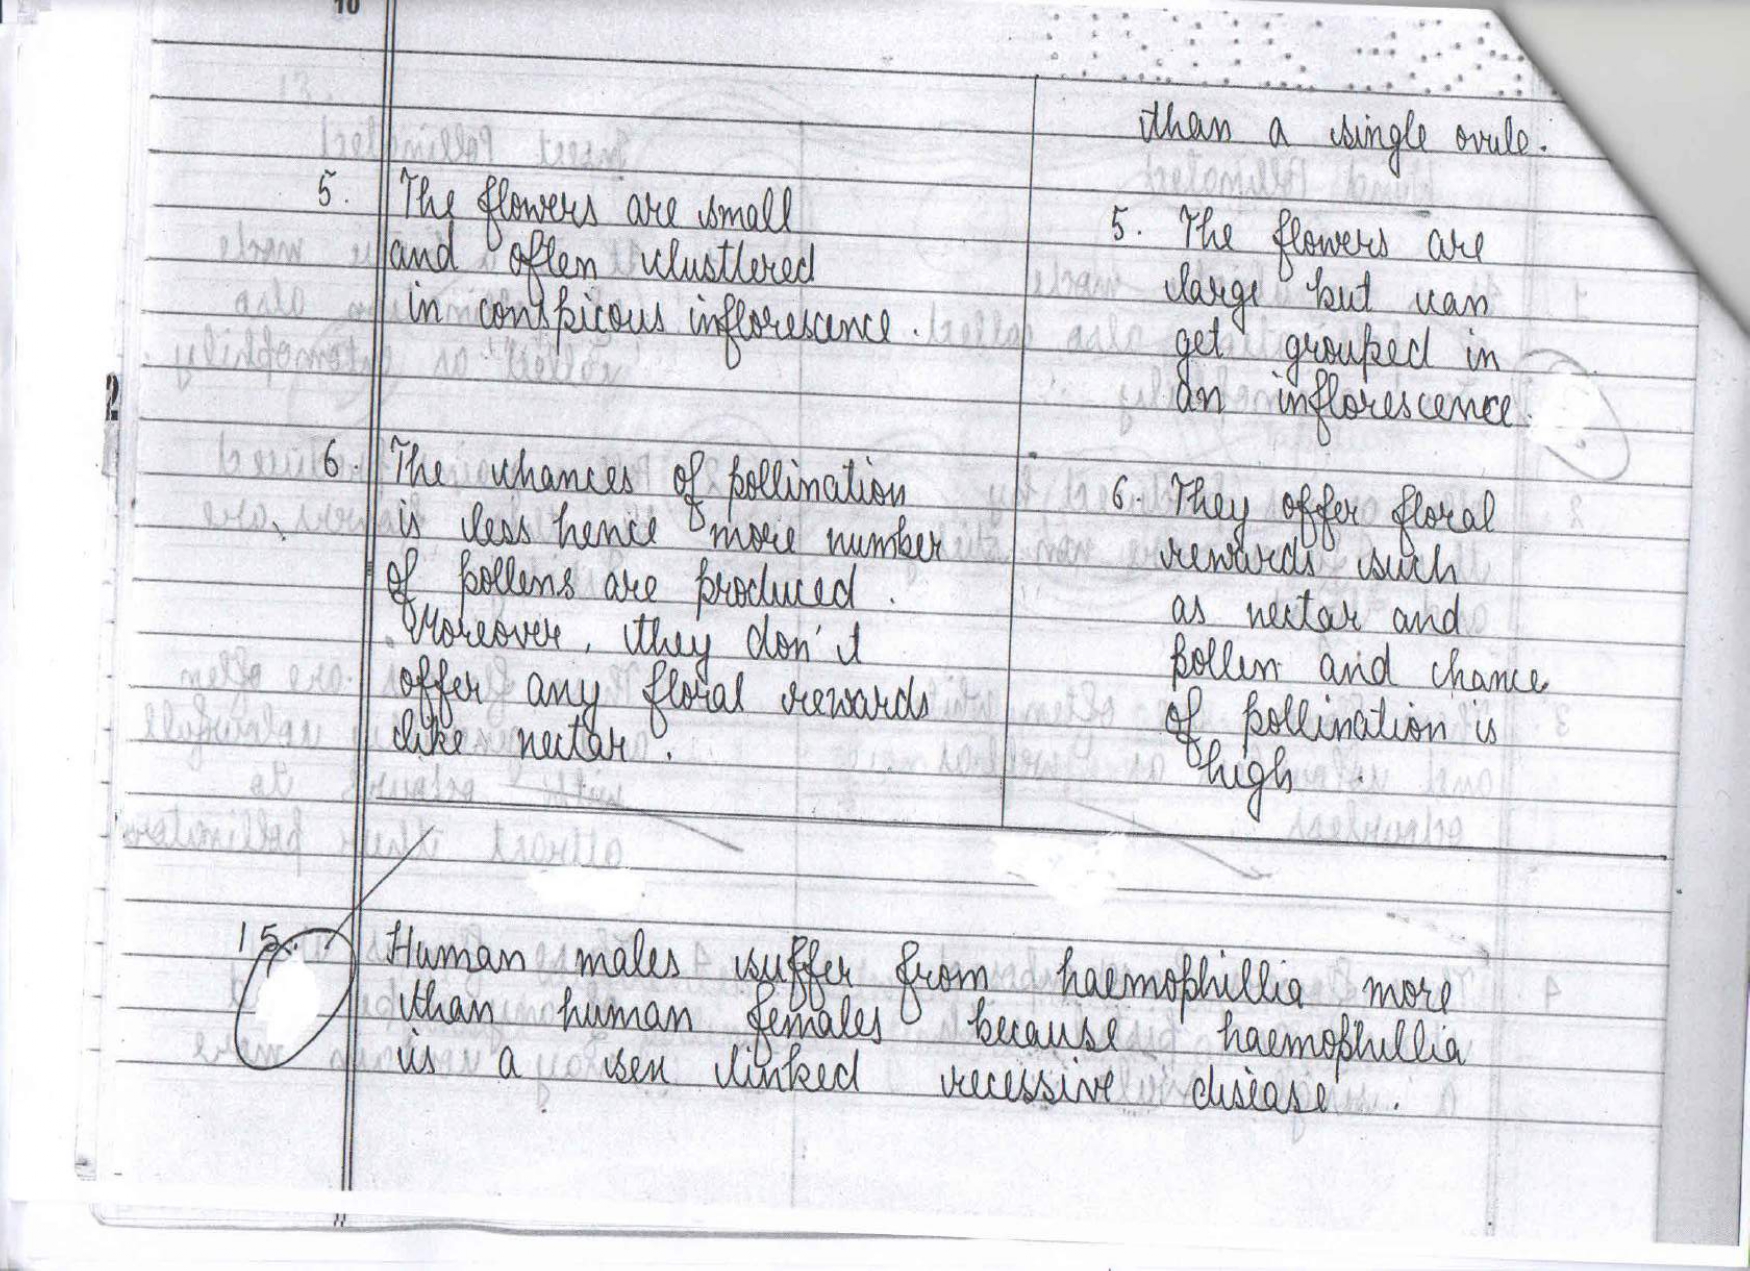 10
than a single ovule.
5. The flowers are small
and often clusttered
in conspicous inflorescence.
5. The flowers are
large but can
get grouped in
an inflorescence.
6. The chances of pollination
is less hence more number
of pollens are produced.
Moreover, they don't
offer any floral rewards
like nectar.
6. They offer floral
rewards such
as nectar and
pollen and chance
of pollination is
high.
15. Human males suffer from haemophillia more
than human females because haemophillia
is a sex linked recessive disease.